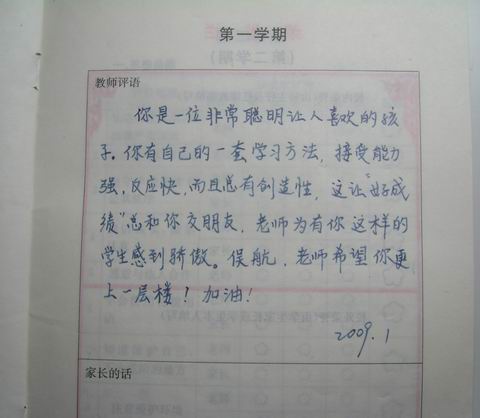 第一学期
教师评语
你是一位非常聪明让人喜欢的孩
子。你有自己的一套学习方法，接受能力
强，反应快，而且总有创造性，这让“好成
绩”总和你交朋友，老师为有你这样的
学生感到骄傲。俣航，老师希望你更
上一层楼！加油！
2009.1
家长的话